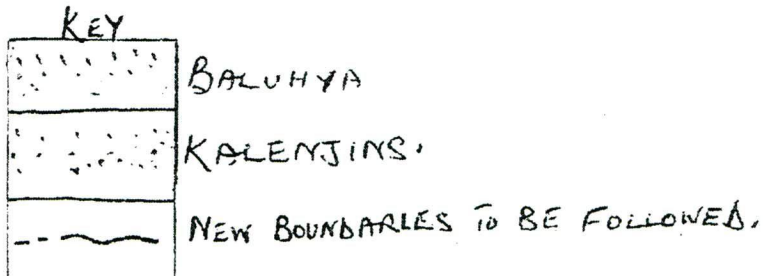 KEY
BALUHYA
KALENJINS.
NEW BOUNDARIES TO BE FOLLOWED.